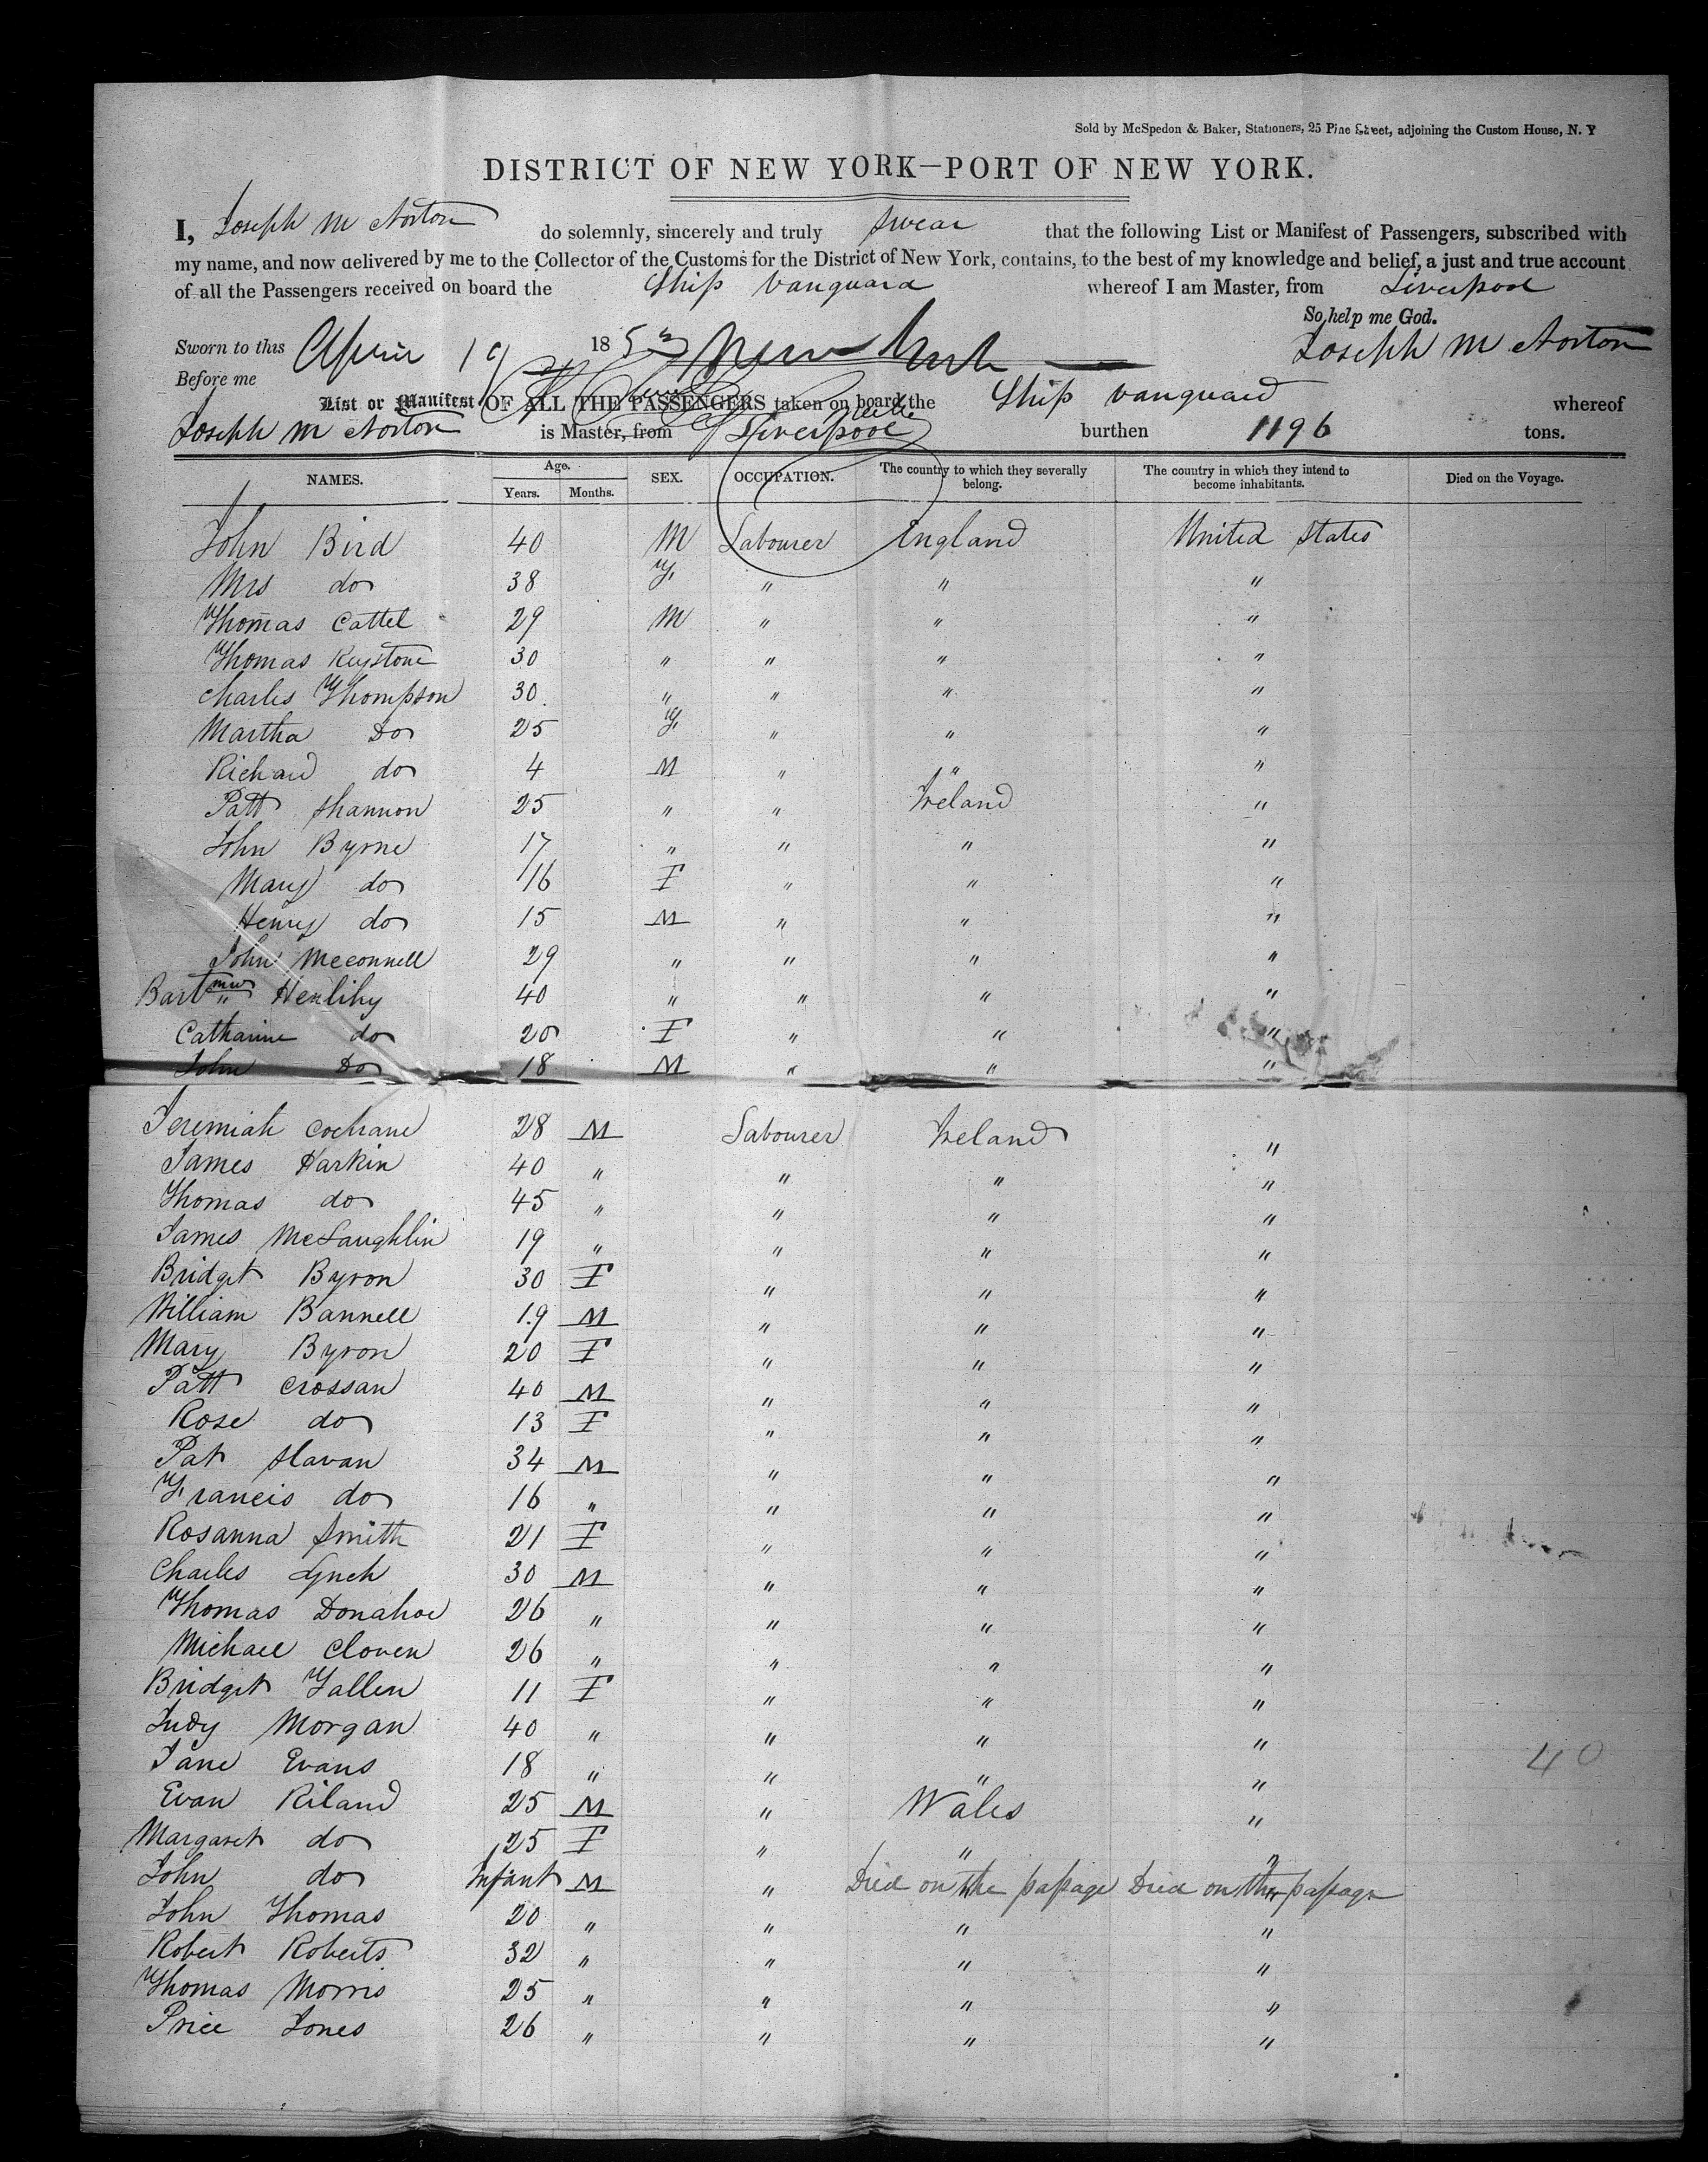 Sold by McSpedon & Baker, Stationers, 25 Pine Street, adjoining the Custom House, N. Y
DISTRICT OF NEW YORK—PORT OF NEW YORK.
I, Joseph M Norton do solemnly, sincerely and truly swear that the following List or Manifest of Passengers, subscribed with
my name, and now delivered by me to the Collector of the Customs for the District of New York, contains, to the best of my knowledge and belief, a just and true account
of all the Passengers received on board the Ship Vanguard whereof I am Master, from Liverpool
So help me God.
Sworn to this April 19 1853 New York Joseph M Norton
Before me
List or Manifest OF ALL THE PASSENGERS taken on board the Ship Vanguard whereof
Joseph M Norton is Master, from Liverpool burthen 1196 tons.
NAMES. Age. Years. Months. SEX. OCCUPATION. The country to which they severally belong. The country in which they intend to become inhabitants. Died on the Voyage.
John Bird 40 M Labourer England United States
Mrs do 38 F " " "
Thomas Cattel 29 M " " "
Thomas Keystone 30 " " " "
Charles Thompson 30 " " " "
Martha Do 25 F " " "
Richard do 4 M " " "
Patt Shannon 25 " " Ireland "
John Byrne 17 " " " "
Mary do 16 F " " "
Henry do 15 M " " "
John Mcconnell 29 " " " "
Bartmw Henlihy 40 " " " "
Catharine do 20 F " " "
John Do 18 M " " "
Jeremiah Cochrane 28 M Labourer Ireland "
James Harkin 40 " " " "
Thomas do 45 " " " "
James McLaughlin 19 " " " "
Bridget Byron 30 F " " "
William Bannell 19 M " " "
Mary Byron 20 F " " "
Patt Crossan 40 M " " "
Rose do 13 F " " "
Pat Slavan 34 M " " "
Francis do 16 " " " "
Rosanna Smith 21 F " " "
Charles Lynch 30 M " " "
Thomas Donahoe 26 " " " "
Michael Cloven 26 " " " "
Bridget Fallen 11 F " " "
Judy Morgan 40 " " " "
Jane Evans 18 " " " "
40
Evan Riland 25 M " Wales "
Margaret do 25 F " " "
John do Infant M " Died on the passage Died on the passage
John Thomas 20 " " " "
Robert Roberts 32 " " " "
Thomas Morris 25 " " " "
Price Jones 26 " " " "